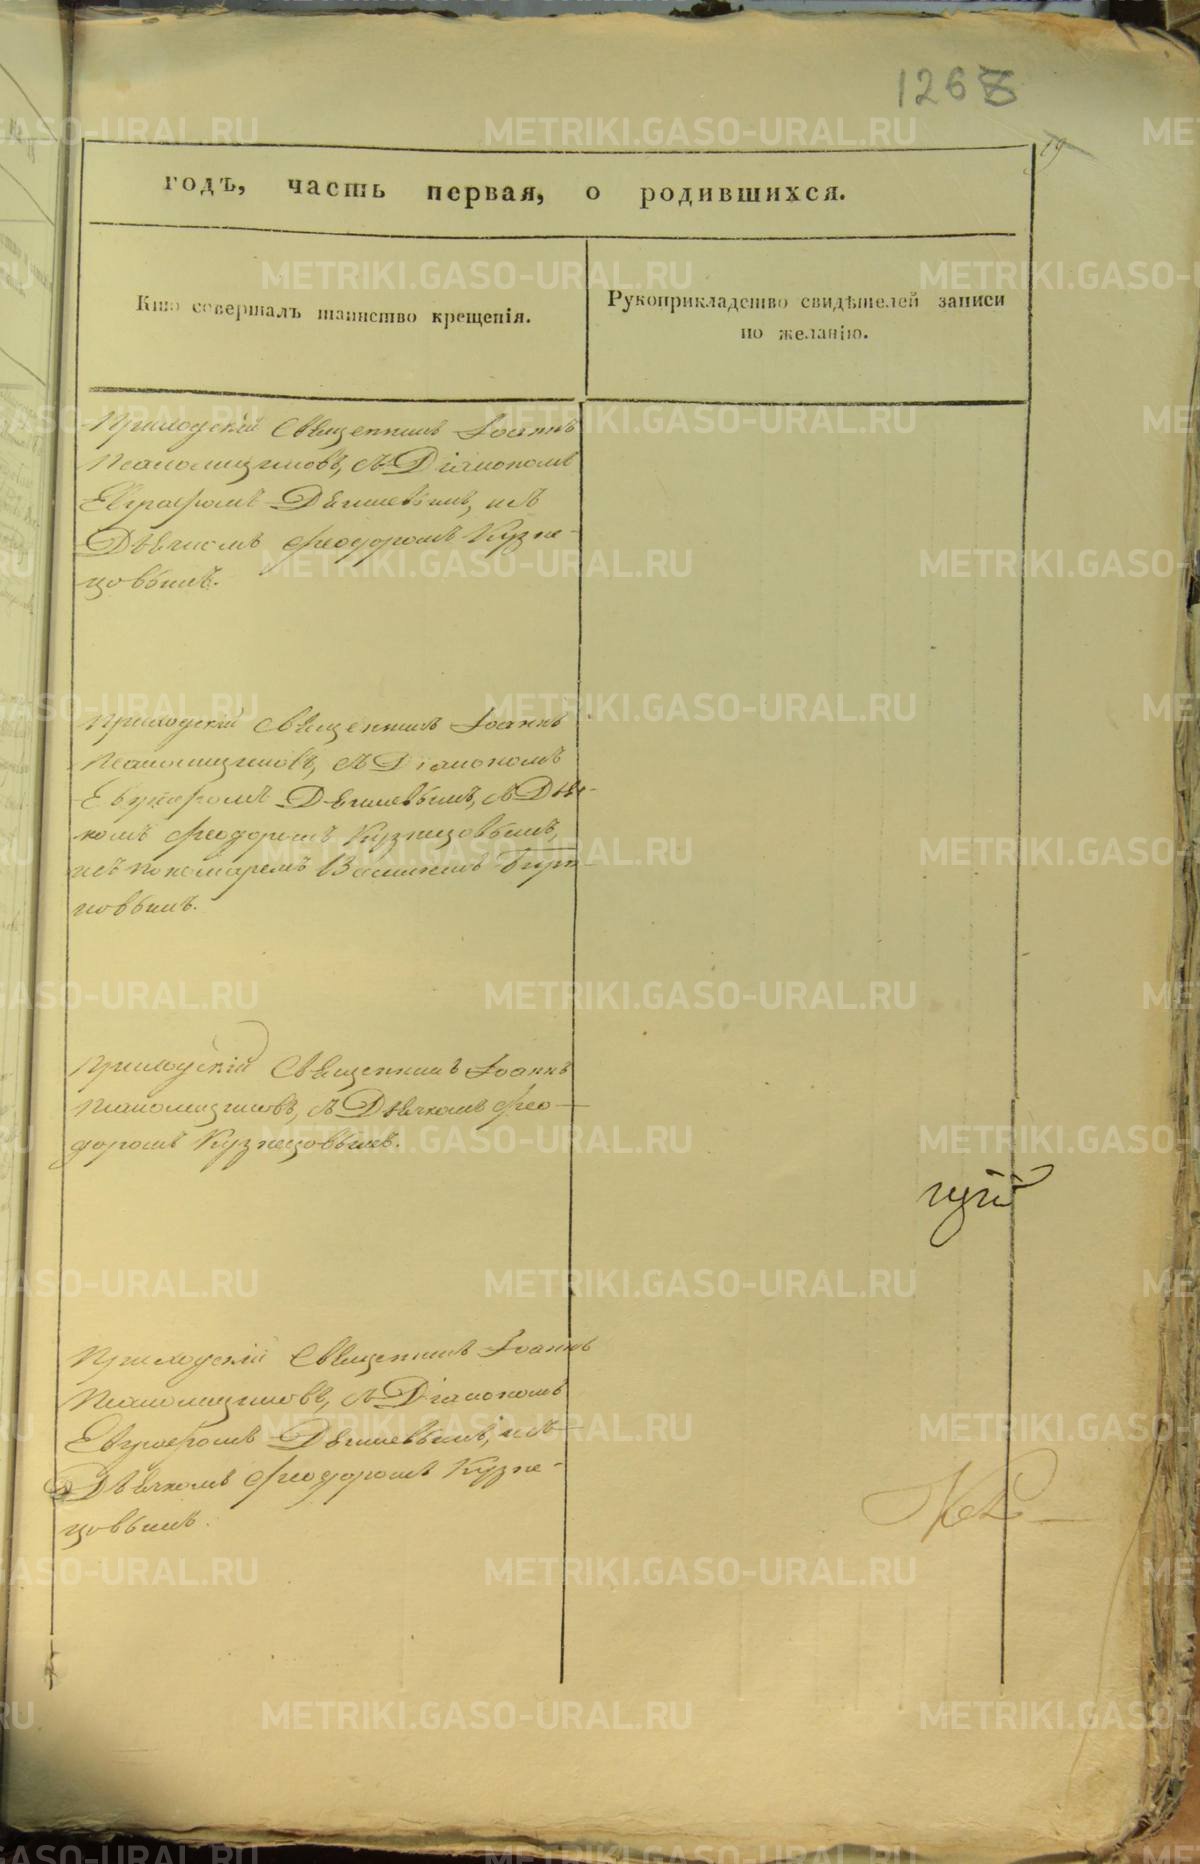 1268
19
годъ, часть первая, о родившихся.
Кто совершалъ таинство крещенія.
Рукоприкладство свидѣтелей записи
по желанію.
Приходскій Священникъ Іоаннъ
съ Діакономъ
Евграфомъ Дягилевымъ, и съ
Дьячкомъ Феодоромъ Кузне-
цовымъ.
Приходскій Священникъ Іоаннъ
съ Діакономъ
Евграфомъ Дягилевымъ, съ Дья-
комъ Феодоромъ Кузнецовымъ,
и съ пономаремъ
новымъ.
Приходскій Священникъ Іоаннъ
съ Дьячкомъ Фео-
доромъ Кузнецовымъ.
Приходскій Священникъ Іоаннъ
съ Діакономъ
Евграфомъ Дягилевымъ, и съ
Дьячкомъ Феодоромъ Кузне-
цовымъ.
METRIKI.GASO-URAL.RU